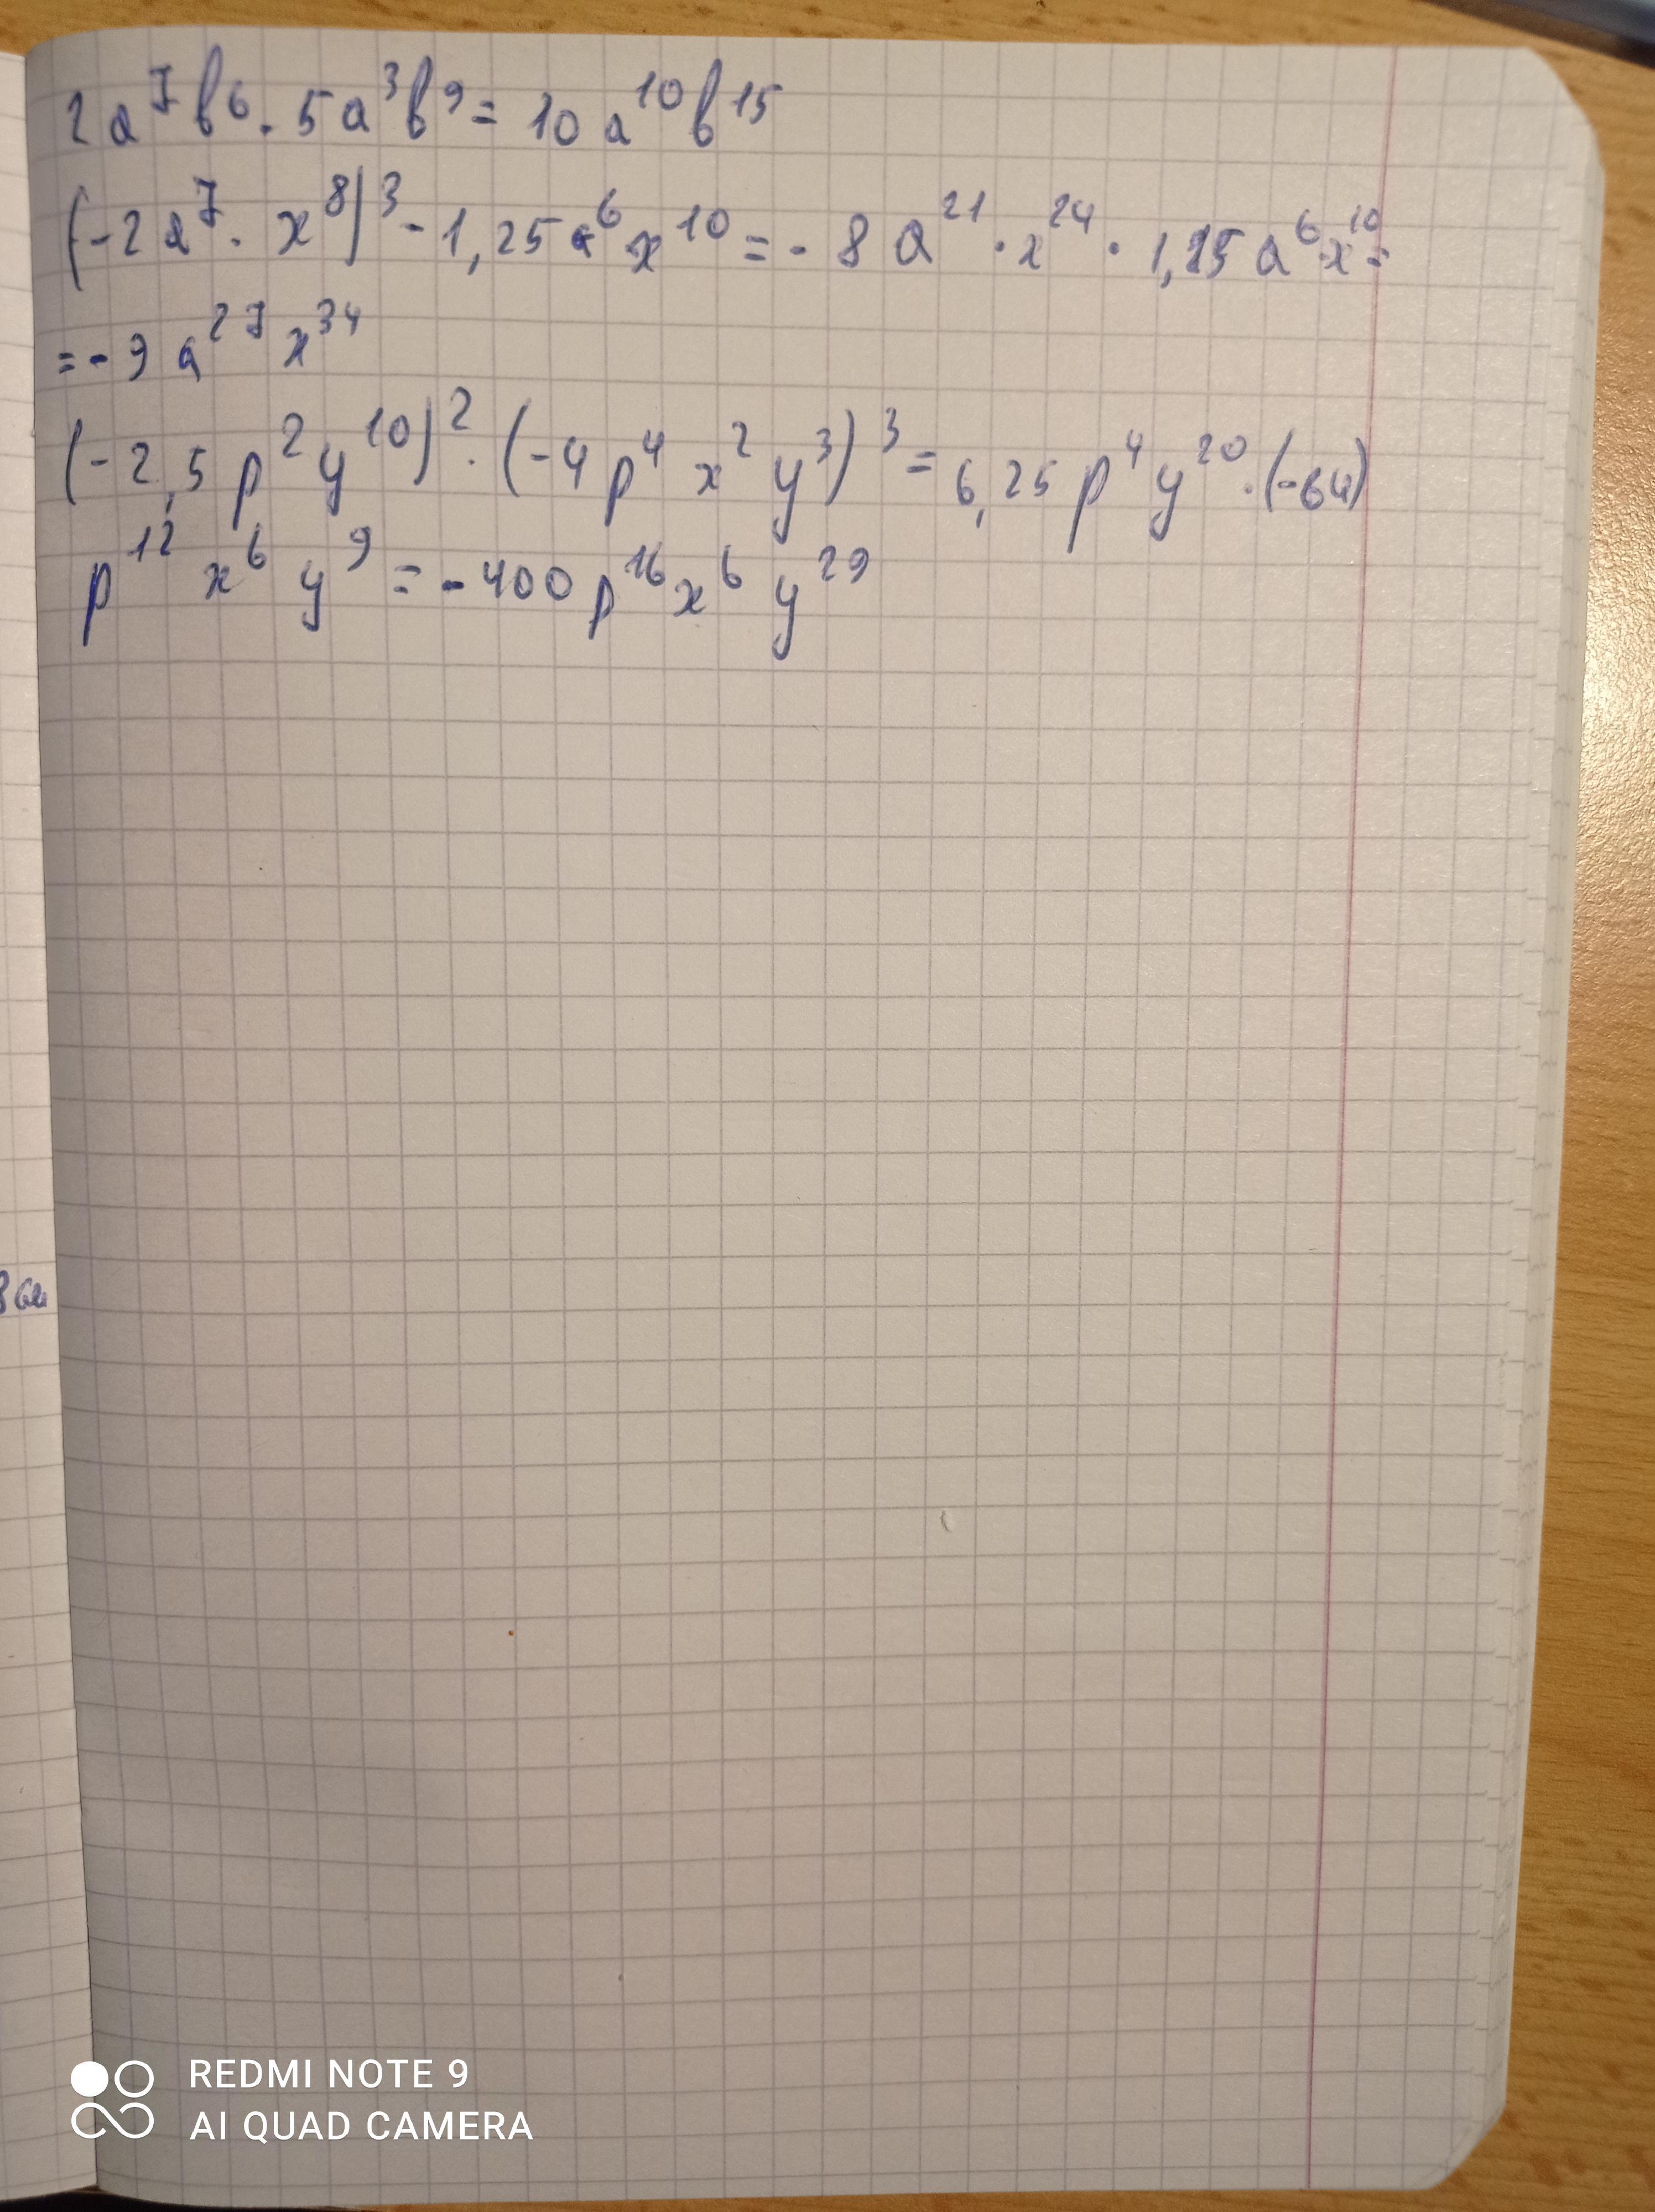 2a⁷b⁶ · 5a³b⁹ = 10a¹⁰b¹⁵
(-2a⁷ · x⁸)³ - 1,25a⁶ · x¹⁰ = -8a²¹ · x²⁴ · 1,25a⁶ · x¹⁰ =
= -9a²⁷x³⁴
(-2,5p²y¹⁰)² · (-4p⁴x²y³)³ = 6,25p⁴y²⁰ · (-64)
p¹²x⁶y⁹ = -400p¹⁶x⁶y²⁹
REDMI NOTE 9
AI QUAD CAMERA